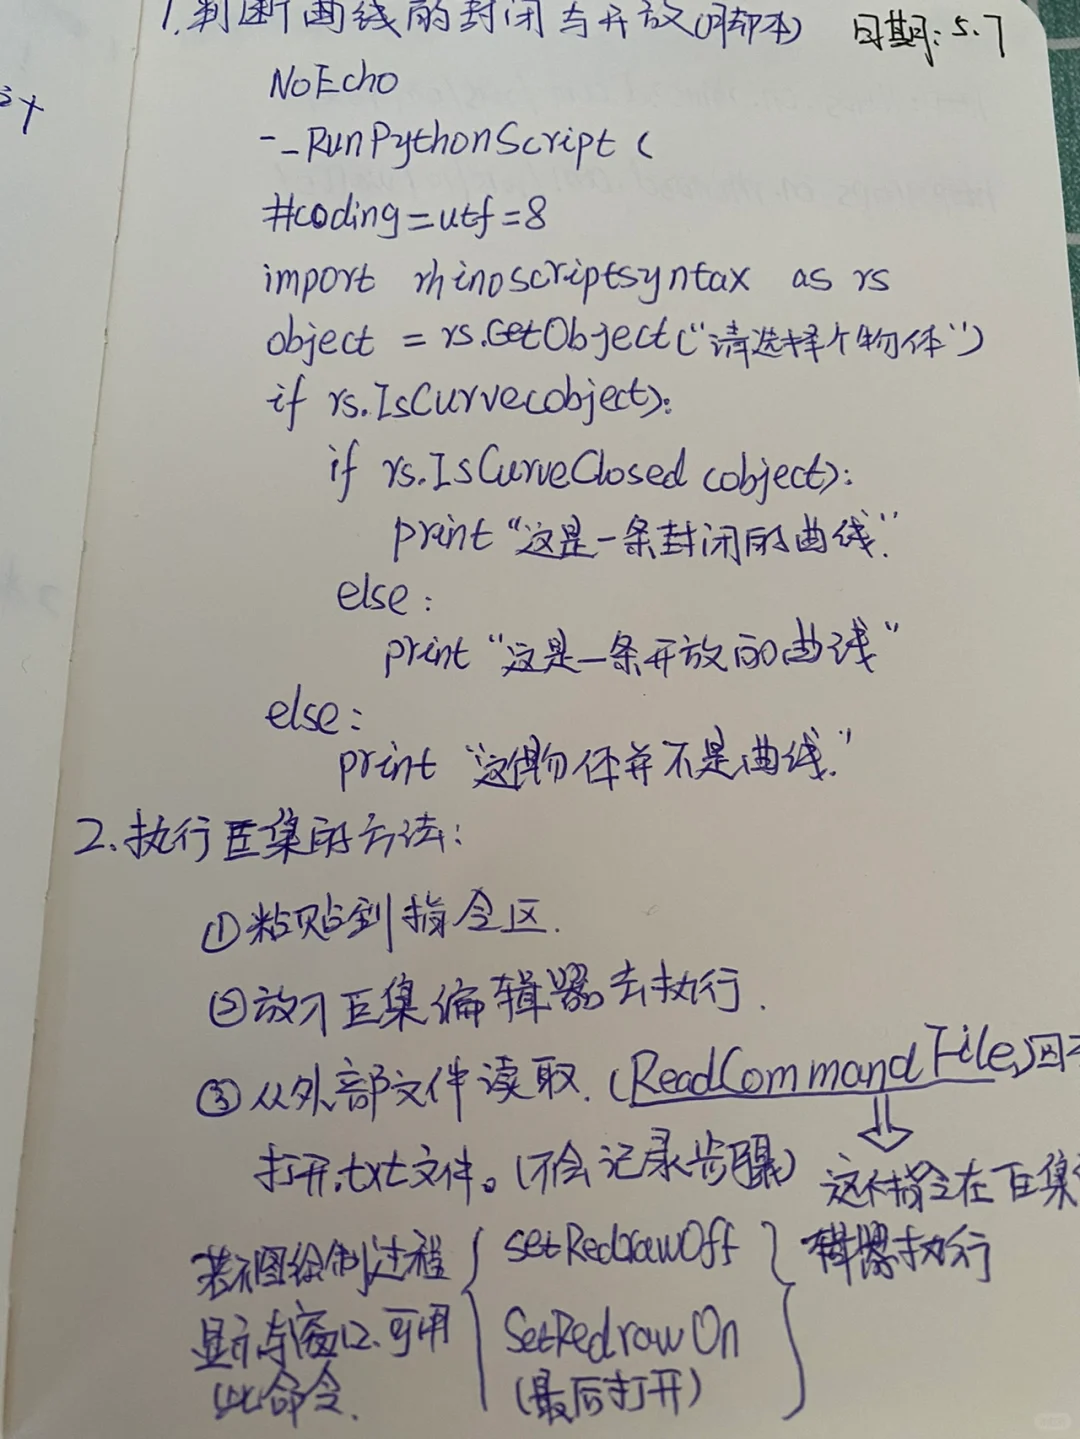 1.判断曲线的封闭与开放(用脚本) 日期:5.7
NoEcho
-_RunPythonScript (
#coding=utf=8
import rhinoscriptsyntax as rs
object = rs.GetObject("请选择个物体")
if rs.IsCurve(object):
if rs.IsCurveClosed (object):
print "这是一条封闭的曲线."
else:
print "这是一条开放的曲线"
else:
print "这個物体并不是曲线."
2.执行巨集的方法:
①粘贴到指令区.
②放入巨集编辑器去执行.
③从外部文件读取.(ReadCommandFile)
打开.txt文件。(不会记录步骤) 这个指令在巨集
辑器执行
若不图绘制过程 SetRedrawOff
显示与窗口、可用 SetRedrawOn
此命令. (最后打开)